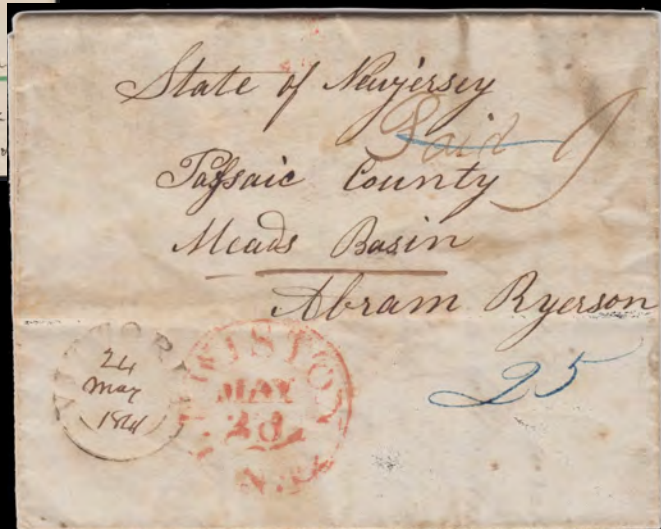 State of Newjersey
Paid 9
Passaic County
Meads Basin
Abram Ryerson
25
24
May
1841
MAY
28
N.J.